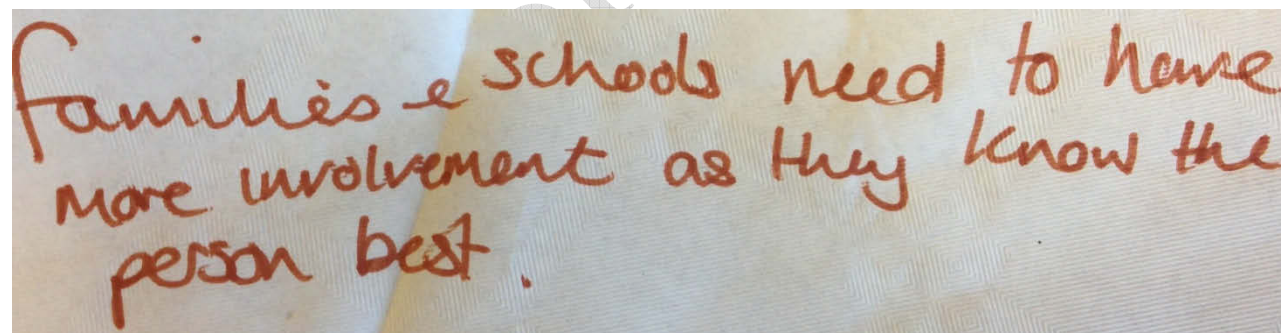 families & schools need to have
more involvement as they know the
person best.